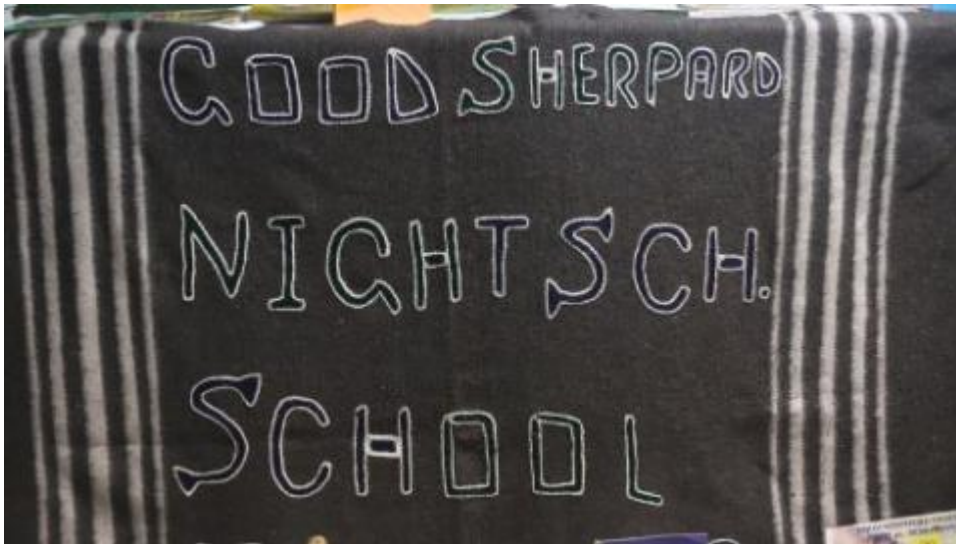 GOOD SHERPARD
NIGHT SCH.
SCHOOL